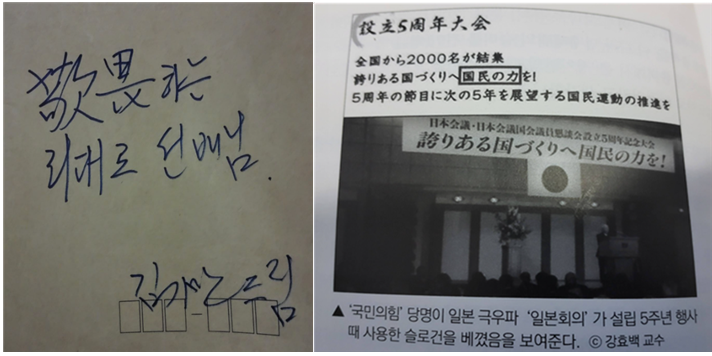 敬畏하는
리대로 선배님.
드림
設立5周年大会
全国から2000名が結集
誇りある国づくりへ国民の力を!
5周年の節目に次の5年を展望する国民運動の推進を
日本会議・日本会議国会議員懇談会設立5周年記念大会
誇りある国づくりへ国民の力を!
▲ '국민의힘' 당명이 일본 극우파 '일본회의'가 설립 5주년 행사
때 사용한 슬로건을 베꼈음을 보여준다. ⓒ 강효백 교수